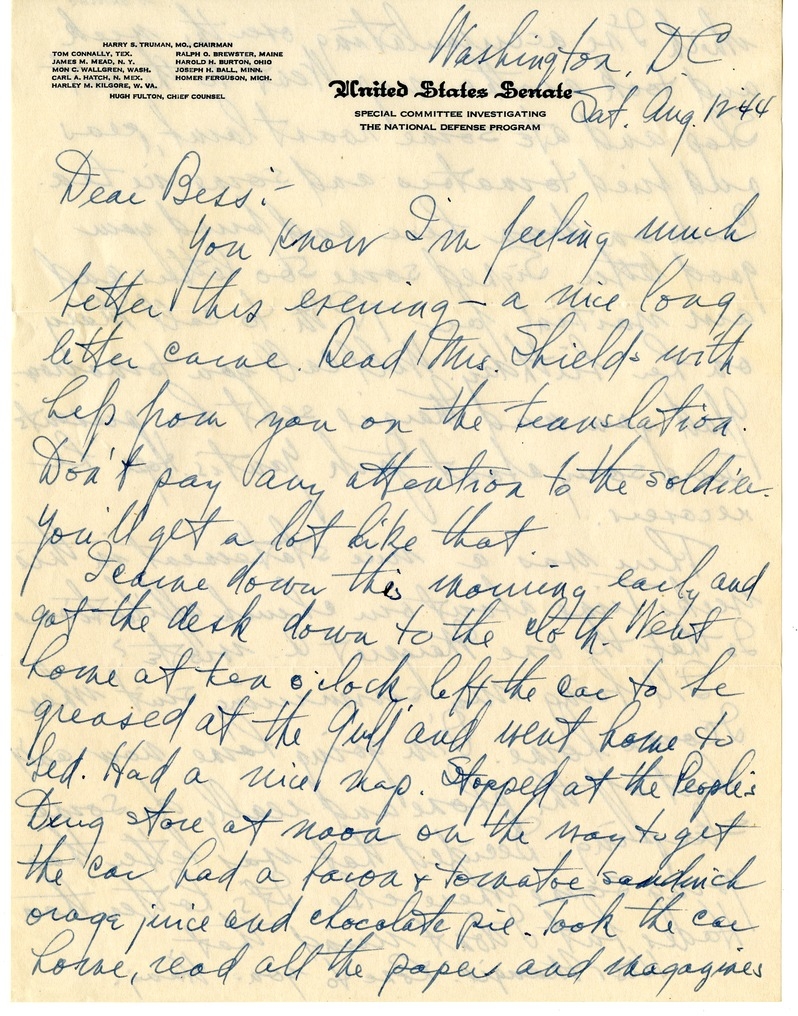 HARRY S. TRUMAN, MO., CHAIRMAN
TOM CONNALLY, TEX. RALPH O. BREWSTER, MAINE
JAMES M. MEAD, N. Y. HAROLD H. BURTON, OHIO
MON C. WALLGREN, WASH. JOSEPH H. BALL, MINN.
CARL A. HATCH, N. MEX. HOMER FERGUSON, MICH.
HARLEY M. KILGORE, W. VA.
HUGH FULTON, CHIEF COUNSEL
Washington, DC
United States Senate
SPECIAL COMMITTEE INVESTIGATING
THE NATIONAL DEFENSE PROGRAM
Sat. Aug. 12 44
Dear Bess:-
You know I'm feeling much
better this evening - a nice long
letter came. Read Mrs. Shields with
help from you on the translation.
Don't pay any attention to the soldier.
You'll get a lot like that
I came down this morning early and
got the desk down to the cloth. Went
home at ten o'clock left the car to be
greased at the Gulf and went home to
bed. Had a nice nap. Stopped at the People's
Drug store at noon on the way to get
the car had a bacon & tomatoe sandwich
orage juice and chocolate pie. Took the car
home, read all the papers and magazines